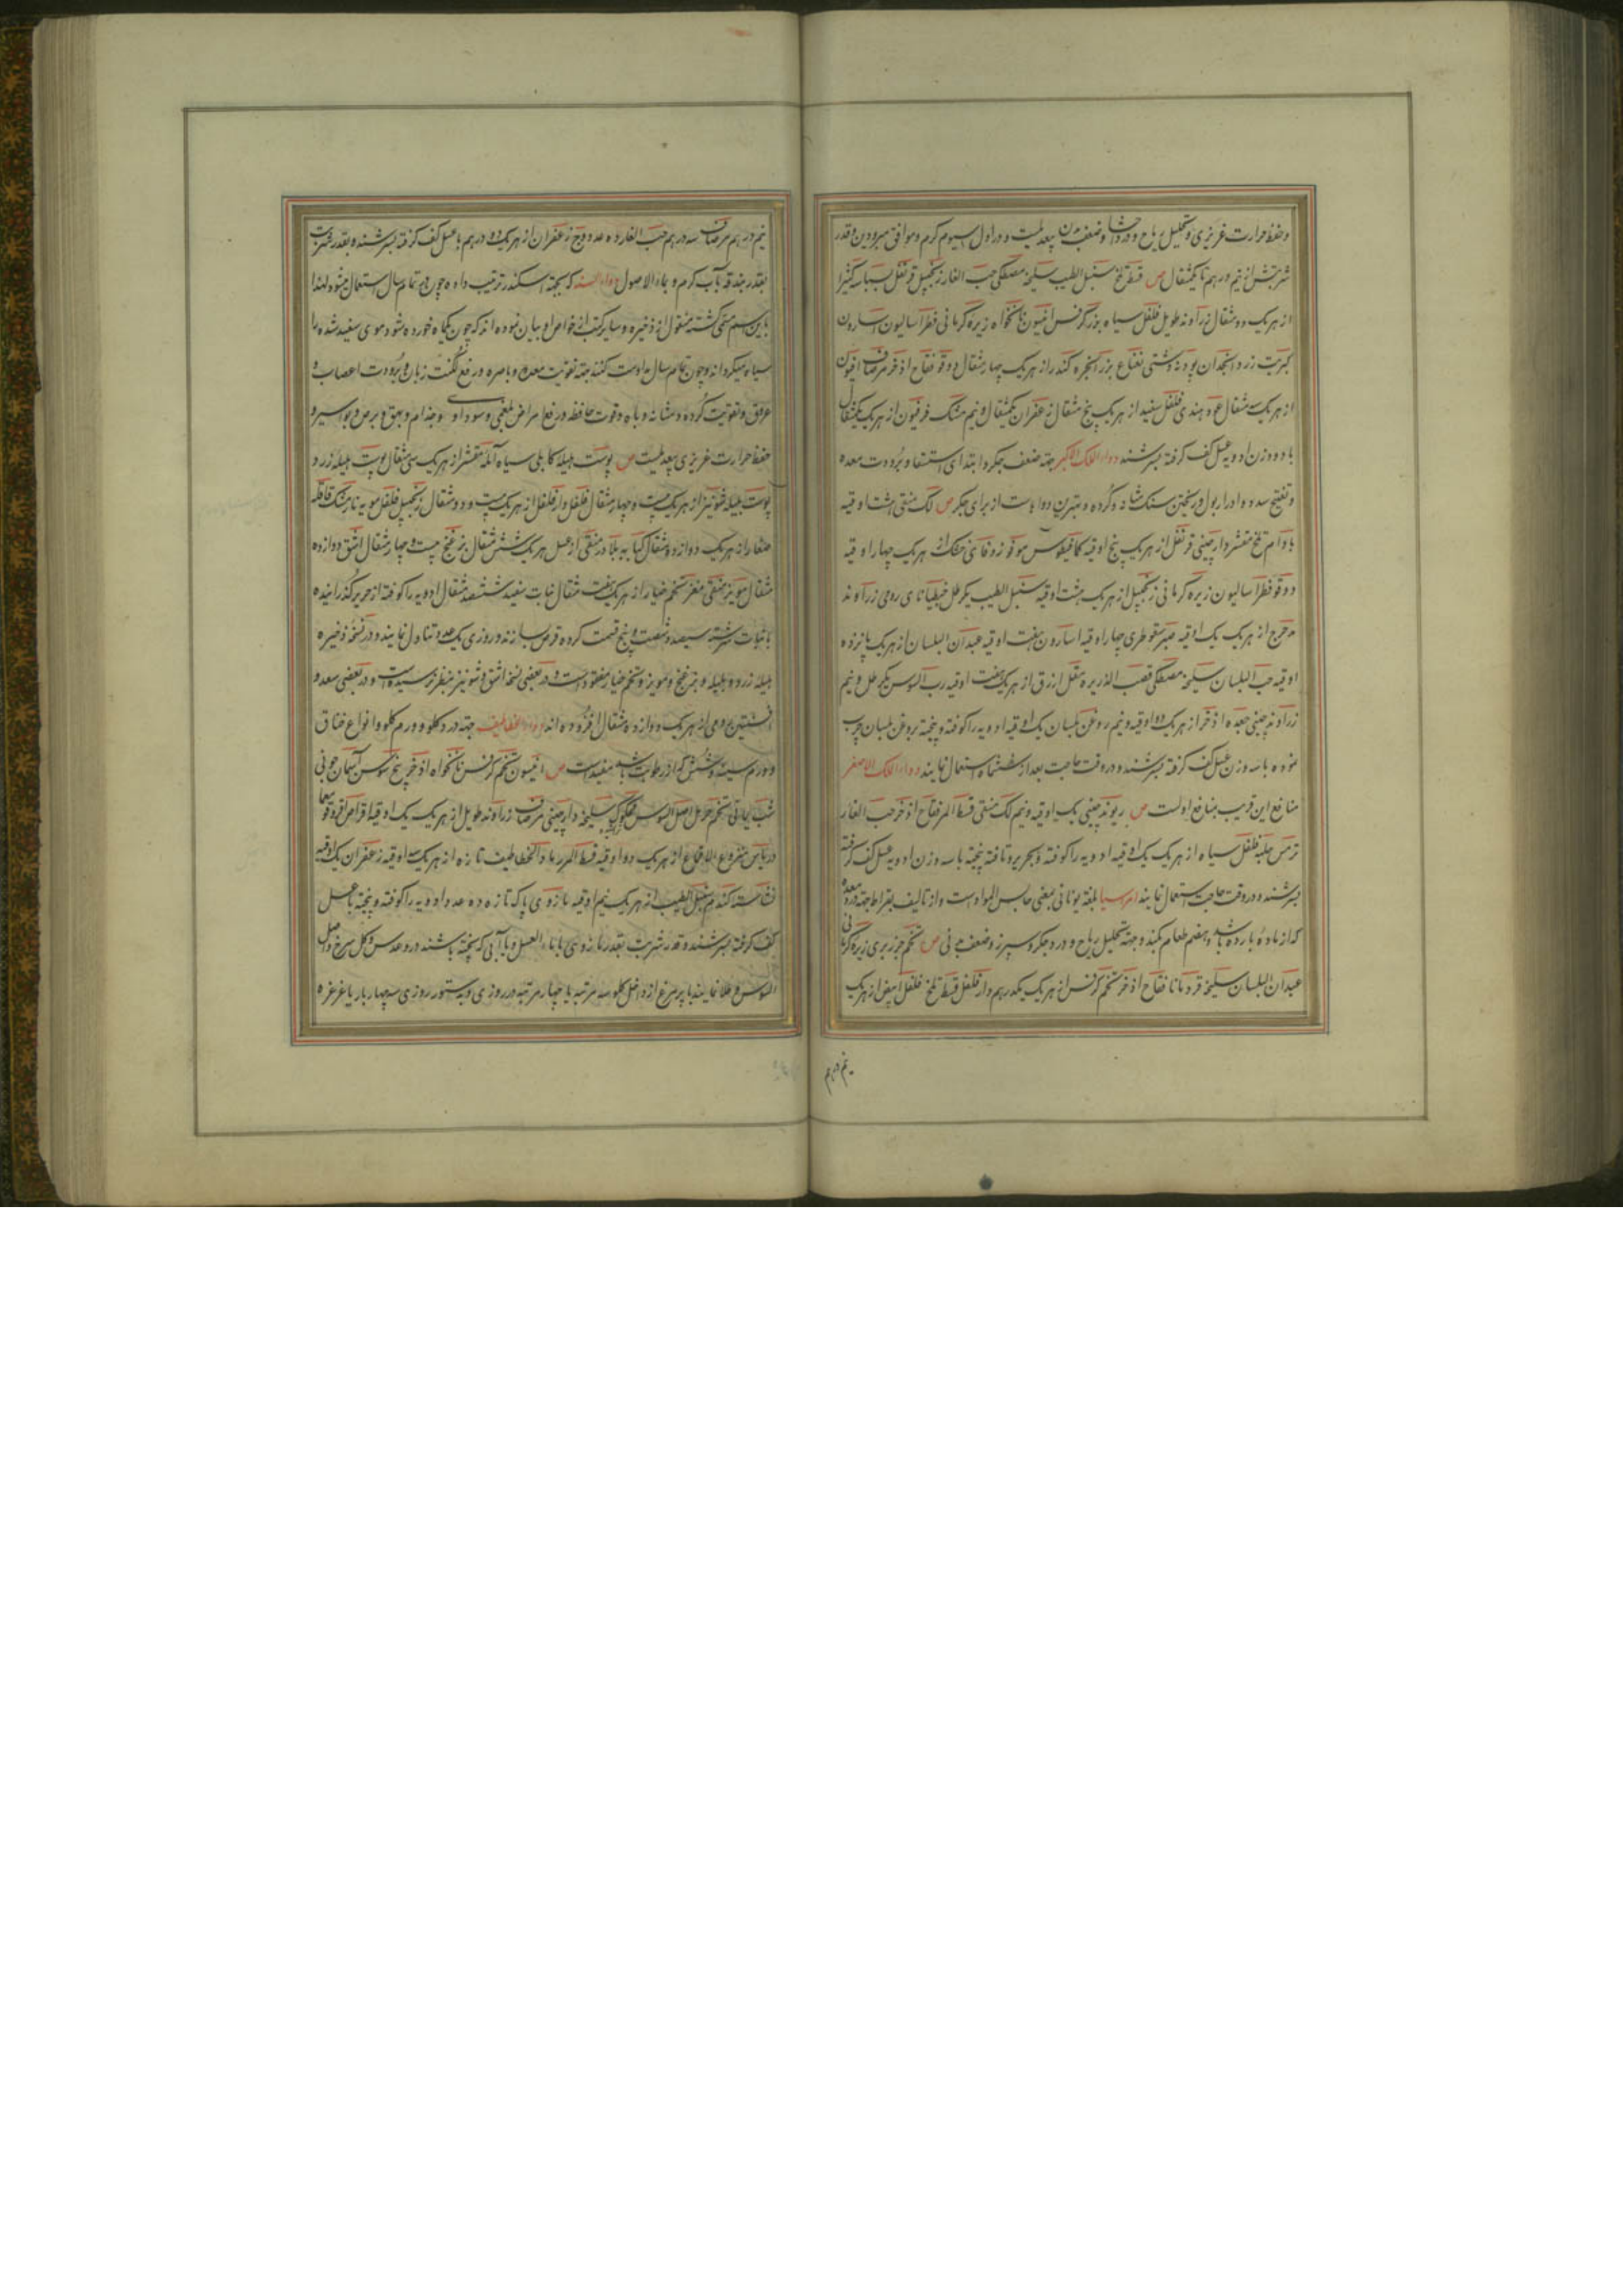 و حفظ حرارت غریزی و تحلیل ریاح و درد احشا و ضعف بدن بیعدیلست و در اول سیوم گرم و موافق مبرودین و قدر
شربتش از نیم درهم تا یکمثقال ص قسط تلخ سنبل الطیب سلیخه مصطکی حب الغار زنجبیل قرنفل بسباسه کثیرا
از هر یک دو مثقال زراوند طویل فلفل سیاه بزر کرفس انیسون نانخواه زیره کرمانی فطراسالیون اسارون
کبریت زرد انجدان پودنه دشتی نعناع بزر انجره کندر از هر یک چهار مثقال دوقو فقاح اذخر مرصاف افیون
از هر یک سه مثقال عود هندی فلفل سفید از هر یک پنج مثقال زعفران یکمثقال و نیم مشک فرفیون از هر یک یکمثقال
با دو وزن ادویه عسل کف گرفته بسرشند دواء اللک الاکبر جهة ضعف جگر و ابتدای استسقا و برودت معده
و تفتیح سدد و ادرار بول و ریختن سنک مثانه و گرده و بهترین دواهاست از برای جگر ص لک منقی هشت اوقیه
بادام تلخ مقشر دارچینی قرنفل از هر یک پنج اوقیه کمافیطوس مو فو زوفای خشک از هر یک چهار اوقیه
دوقو فطراسالیون زیره کرمانی زنجبیل از هر یک هشت اوقیه سنبل الطیب یکرطل جنطیانای رومی زراوند
مدحرج از هر یک یک اوقیه صبر سقوطری چهار اوقیه اسارون هفت اوقیه عیدان البلسان از هر یک پانزده
اوقیه حب البلسان سلیخه مصطکی قصب الذریره مقل ازرق از هر یک هفت اوقیه رب السوس یکرطل و نیم
زراوند چینی جعده اذخر از هر یک دو اوقیه و نیم روغن بلسان یک اوقیه ادویه را کوفته و بیخته بروغن بلسان چرب
نموده با سه وزن عسل کف گرفته بسرشند و در وقت حاجت بعد از ششماه استعمال نمایند دواء اللک الاصغر
منافع این قریب بمنافع اولست ص ریوند چینی یک اوقیه و نیم لک منقی قسط المر فقاح اذخر حب الغار
ترمس حلبه فلفل سیاه از هر یک یک اوقیه ادویه را کوفته و بحریر و تافته بیخته با سه وزن ادویه عسل کف گرفته
بسرشند و در وقت حاجت استعمال نمایند امروسیا بلغة یونانی بمعنی حابس المواد است و از تالیف بقراط جهة درد معده
که از ماده بارده باشد و هضم طعام بکند و جهة تحلیل ریاح و درد جگر و سپرز و ضعف ص تخم جزر بری زیره کرمانی
عیدان البلسان سلیخه قردمانا فقاح اذخر تخم کرفس از هر یک یکدرهم دارفلفل قسط تلخ فلفل ابیض از هر یک
نیم درهم
نیم درهم مرصاف سه درهم حب الغار ده عدد وج زعفران از هر یک دو درهم با عسل کف گرفته بسرشند و بقدر شربت
بقدر بندقه باب گرم و بماء الاصول دواء السنه که بجهة اسکندر ترتیب داده چون در تمام سال استعمال میشود لهذا
باین اسم مسمی گشته منقول از ذخیره و سایر کتب و از خواص او بیان نموده اند که چون یکماه خورده شود موی سفید شده را
سیاه میگرداند و چون تمام سال مداومت کنند جهة تقویت معده و باصره و رفع لکنت زبان و برودت اعصاب و
عروق و تقویت گرده و مثانه و باه و قوت حافظه و رفع امراض بلغمی و سوداوی و جذام و بهق و برص و بواسیر و
حفظ حرارت غریزی بیعدیلست ص پوست هلیله کابلی سیاه آمله مقشر از هر یک سی مثقال پوست هلیله زرد
پوست بلیله شونیز از هر یک بیست و چهار مثقال فلفل دارفلفل از هر یک بیست و دو مثقال زنجبیل فلفل مویه نارمشک قاقله
صغار از هر یک دوازده مثقال کبابه بلادر منقی از عسل هر یک شش مثقال برنج بیست و چهار مثقال اشق دوازده
مثقال مویز منقی مغز تخم خیار از هر یک مثقال نبات سفید ششصد مثقال ادویه را کوفته از حریر گذرانیده
با نبات سرشته سیصد و شصت و پنج قسمت کرده قرص سازند و روزی یک عدد تناول نمایند و در نسخه ذخیره
هلیله زرد و بلیله و برنج و مویز و تخم خیار مفقود است و در بعضی نسخ اشق و شونیز بنظر نرسیده است و در بعضی سعد و
افسنتین رومی از هر یک دوازده مثقال افزوده اند دواء الخطاطیف جهة درد گلو و ورم گلو و انواع خناق
و ورم سینه و شش که از رطوبت باشد مفیدست ص انیسون تخم کرفس نانخواه اذخر بیخ سوسن آسمان جونی
شب یمانی تخم حرمل اصل السوس سلیخه دارچینی مرصاف زراوند طویل از هر یک یک اوقیه اقراص
منزوع الاقماع از هر یک دو اوقیه قسط المر رماد الخطاطیف تازه از هر یک سه اوقیه زعفران یک اوقیه
نشاسته گندم سنبل الطیب از هر یک نیم اوقیه مازوی پاک تازه ده عدد ادویه را کوفته و بیخته با عسل
کف گرفته بسرشند و قدر شربت بقدر مازوی با ماء العسل و با آبی که پخته باشند در و عدس و گل سرخ و اصل
السوس و طلا نمایند با پر مرغ از داخل گلو سه مرتبه یا چهار مرتبه در روزی و بدستور روزی سه چهار بار با غرغره